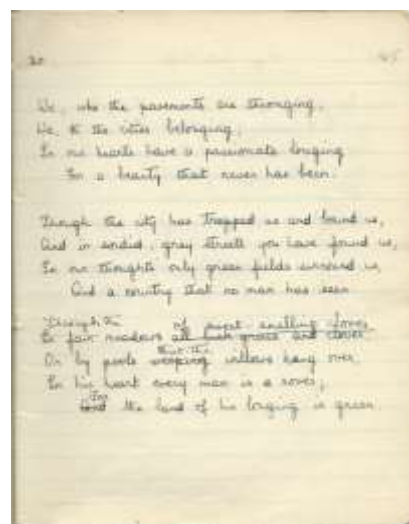 20
We, who the pavements are thronging,
We, to the cities belonging,
In our hearts have a passionate longing
For a beauty that never has been.
Though the city has trapped us and bound us,
And in sordid, grey streets you have found us,
In our thoughts only green fields surround us,
And a country that no man has seen
Through the of sweet smelling clover
In fair meadows all lush grass and clover
that the
Or by pools weeping willows hang over.
In his heart every man is a rover,
For
And the land of his longing is green.